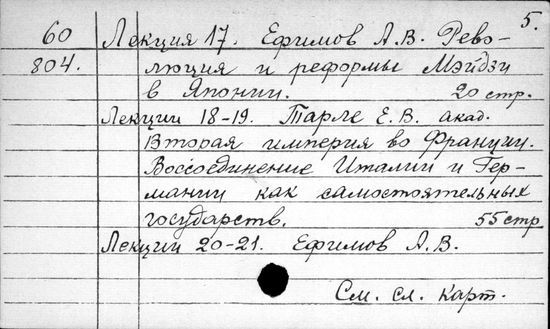 5.
60 Лекция 17. Ефимов А.В. Рево-
804. люция и реформы Мэйдзи
в Японии. 20 стр.
Лекции 18-19. Тарле Е.В. акад.
Вторая империя во Франции.
Воссоединение Италии и Гер-
мании как самостоятельных
государств. 55 стр
Лекции 20-21. Ефимов А.В.
См. сл. карт.